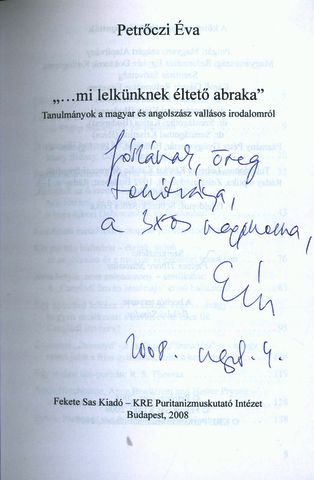 Petrőczi Éva
„...mi lelkünknek éltető abraka”
Tanulmányok a magyar és angolszász vallásos irodalomról
öreg
a 3xos nagymama,
Évi
2008.
4.
Fekete Sas Kiadó – KRE Puritanizmuskutató Intézet
Budapest, 2008